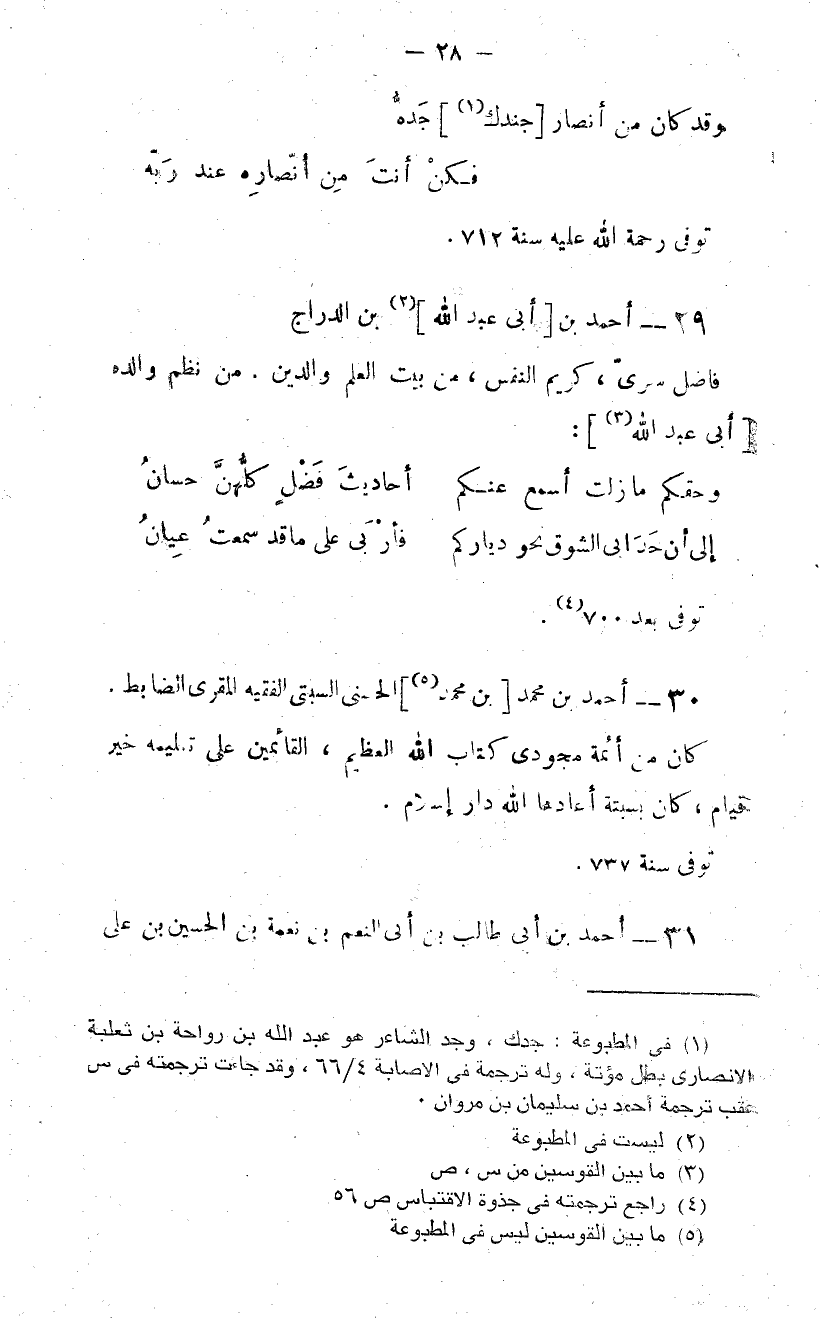 — ٢٨ —
وقد كان من أنصار [جندك(١)] جَدهُّ
فـكنْ أنتَ مِن أنّصارِه عند رَبّه
توفى رحمة الله عليه سنة ٧١٢ .
٢٩ — أحمد بن [أبى عبد الله](٢) بن الدراج
فاضل سرىّ ، كريم النفس ، من بيت العلم والدين . من نظم والده
[أبى عبد الله(٣)] :
وحقـكم مازلت أسمع عنـكم أحاديثَ فَضْلٍ كلُّهنَّ حسانُ
إلى أن حَدَابى الشوق نحو دياركم فأرْبَى على ماقد سمعتُ عِيانُ
توفى بعد ٧٠٠(٤) .
٣٠ — أحمد بن محمد [بن محمد(٥)] الحسنى السبتى الفقيه المقرى الضابط .
كان من أئمة مجودى كتاب الله العظيم ، القائمين على تعليمه خير
قيام ، كان بسبتة أعادها الله دار إسلام .
توفى سنة ٧٣٧ .
٣١ — أحمد بن أبى طالب بن أبى النعم بن نعمة بن الحسين بن على
(١) فى المطبوعة : جدك ، وجد الشاعر هو عبد الله بن رواحة بن ثعلبة
الانصارى بطل مؤتة ، وله ترجمة فى الاصابة ٦٦/٤ ، وقد جاءت ترجمته فى س
عقب ترجمة أحمد بن سليمان بن مروان ٠
(٢) ليست فى المطبوعة
(٣) ما بين القوسين من س ، ص
(٤) راجع ترجمته فى جذوة الاقتباس ص ٥٦
(٥) ما بين القوسين ليس فى المطبوعة